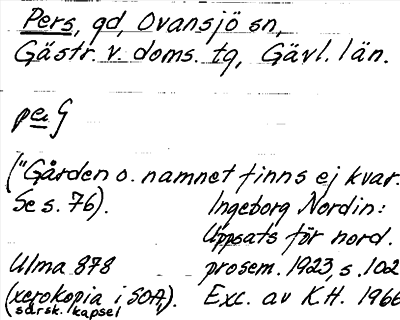 Pers, gd, Ovansjö sn,
Gästr. v. doms. tg, Gävl. län.
("Gården o. namnet finns ej kvar.
Se s. 76).
Ingeborg Nordin:
Uppsats för nord.
prosem. 1923, s. 102
Exc. av K.H. 1966
Ulma 878
(xerokopia i SOA,).
särsk. kapsel